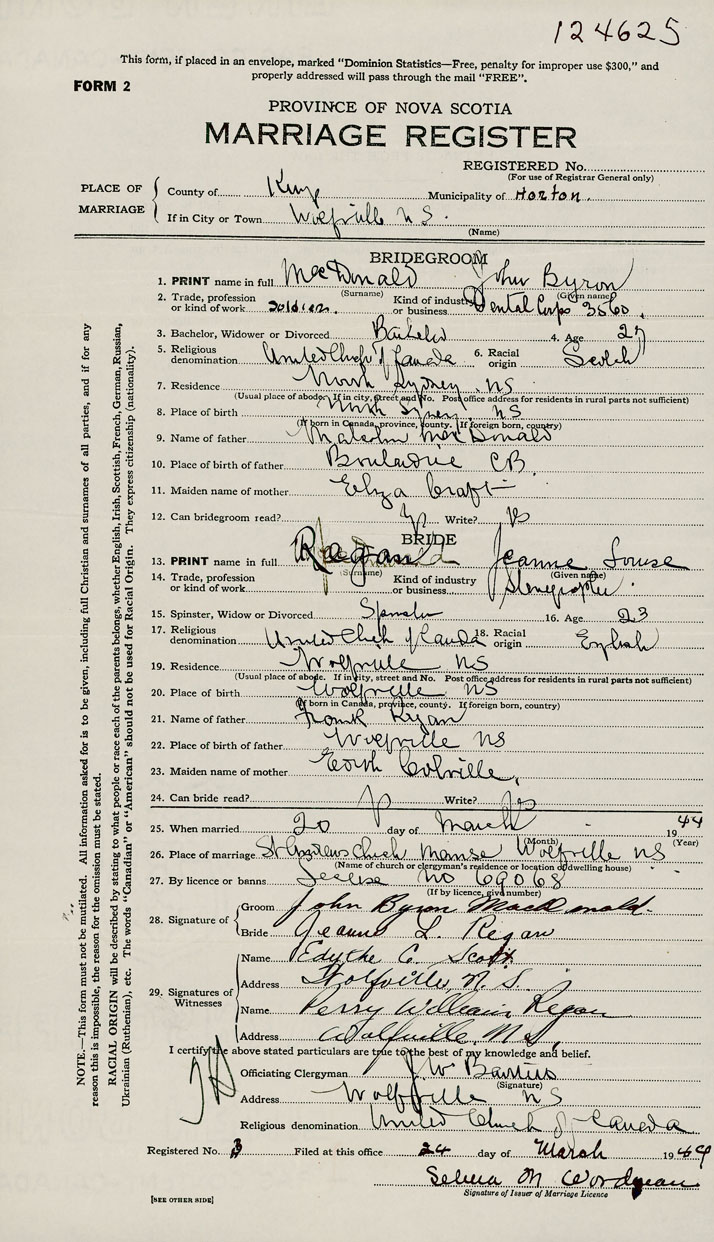 124625
This form, if placed in an envelope, marked "Dominion Statistics—Free, penalty for improper use $300," and
properly addressed will pass through the mail "FREE".
FORM 2
PROVINCE OF NOVA SCOTIA
MARRIAGE REGISTER
REGISTERED No.
(For use of Registrar General only)
PLACE OF MARRIAGE
County of Kings Municipality of Horton.
If in City or Town Wolfville N S.
(Name)
BRIDEGROOM
1. PRINT name in full MacDonald John Byron
(Surname) (Given name)
2. Trade, profession or kind of work soldier. Kind of industry or business Dental Corps 3560.
3. Bachelor, Widower or Divorced Bachelor 4. Age 27
5. Religious denomination United Church of Canada 6. Racial origin Scotch
7. Residence North Sydney NS
(Usual place of abode. If in city, street and No. Post office address for residents in rural parts not sufficient)
8. Place of birth North Sydney NS
(If born in Canada, province, county. If foreign born, country)
9. Name of father Malcolm MacDonald
10. Place of birth of father Boularderie CB.
11. Maiden name of mother Eliza Craft
12. Can bridegroom read? Yes Write? Yes
BRIDE
13. PRINT name in full Regan Jeanne Louise
(Surname) (Given name)
14. Trade, profession or kind of work Kind of industry or business Stenographer.
15. Spinster, Widow or Divorced Spinster 16. Age 23
17. Religious denomination United Church of Canada 18. Racial origin English
19. Residence Wolfville NS
(Usual place of abode. If in city, street and No. Post office address for residents in rural parts not sufficient)
20. Place of birth Wolfville NS
(If born in Canada, province, county. If foreign born, country)
21. Name of father Frank Regan
22. Place of birth of father Wolfville NS
23. Maiden name of mother Colville.
24. Can bride read? Yes Write? Yes
25. When married 20 day of March 1944
(Month) (Year)
26. Place of marriage St Andrews Church Manse Wolfville NS
(Name of church or clergyman's residence or location of dwelling house)
27. By licence or banns License No 69068
(If by licence, give number)
28. Signature of
Groom John Byron MacDonald.
Bride Jeanne L. Regan
29. Signatures of Witnesses
Name Edythe C. Scott
Address Wolfville, N. S.
Name Perry William Regan
Address Wolfville, N.S.
I certify the above stated particulars are true to the best of my knowledge and belief.
Officiating Clergyman J. W.
(Signature)
Address Wolfville NS
Religious denomination United Church of Canada
Registered No. 3 Filed at this office 24 day of March 1944
M Wordman
Signature of Issuer of Marriage Licence
[SEE OTHER SIDE]
NOTE.—This form must not be mutilated. All information asked for is to be given, including full Christian and surnames of all parties, and if for any
reason this is impossible, the reason for the omission must be stated.
RACIAL ORIGIN will be described by stating to what people or race each of the parents belongs, whether English, Irish, Scottish, French, German, Russian,
Ukrainian (Ruthenian), etc. The words "Canadian" or "American" should not be used for Racial Origin. They express citizenship (nationality).